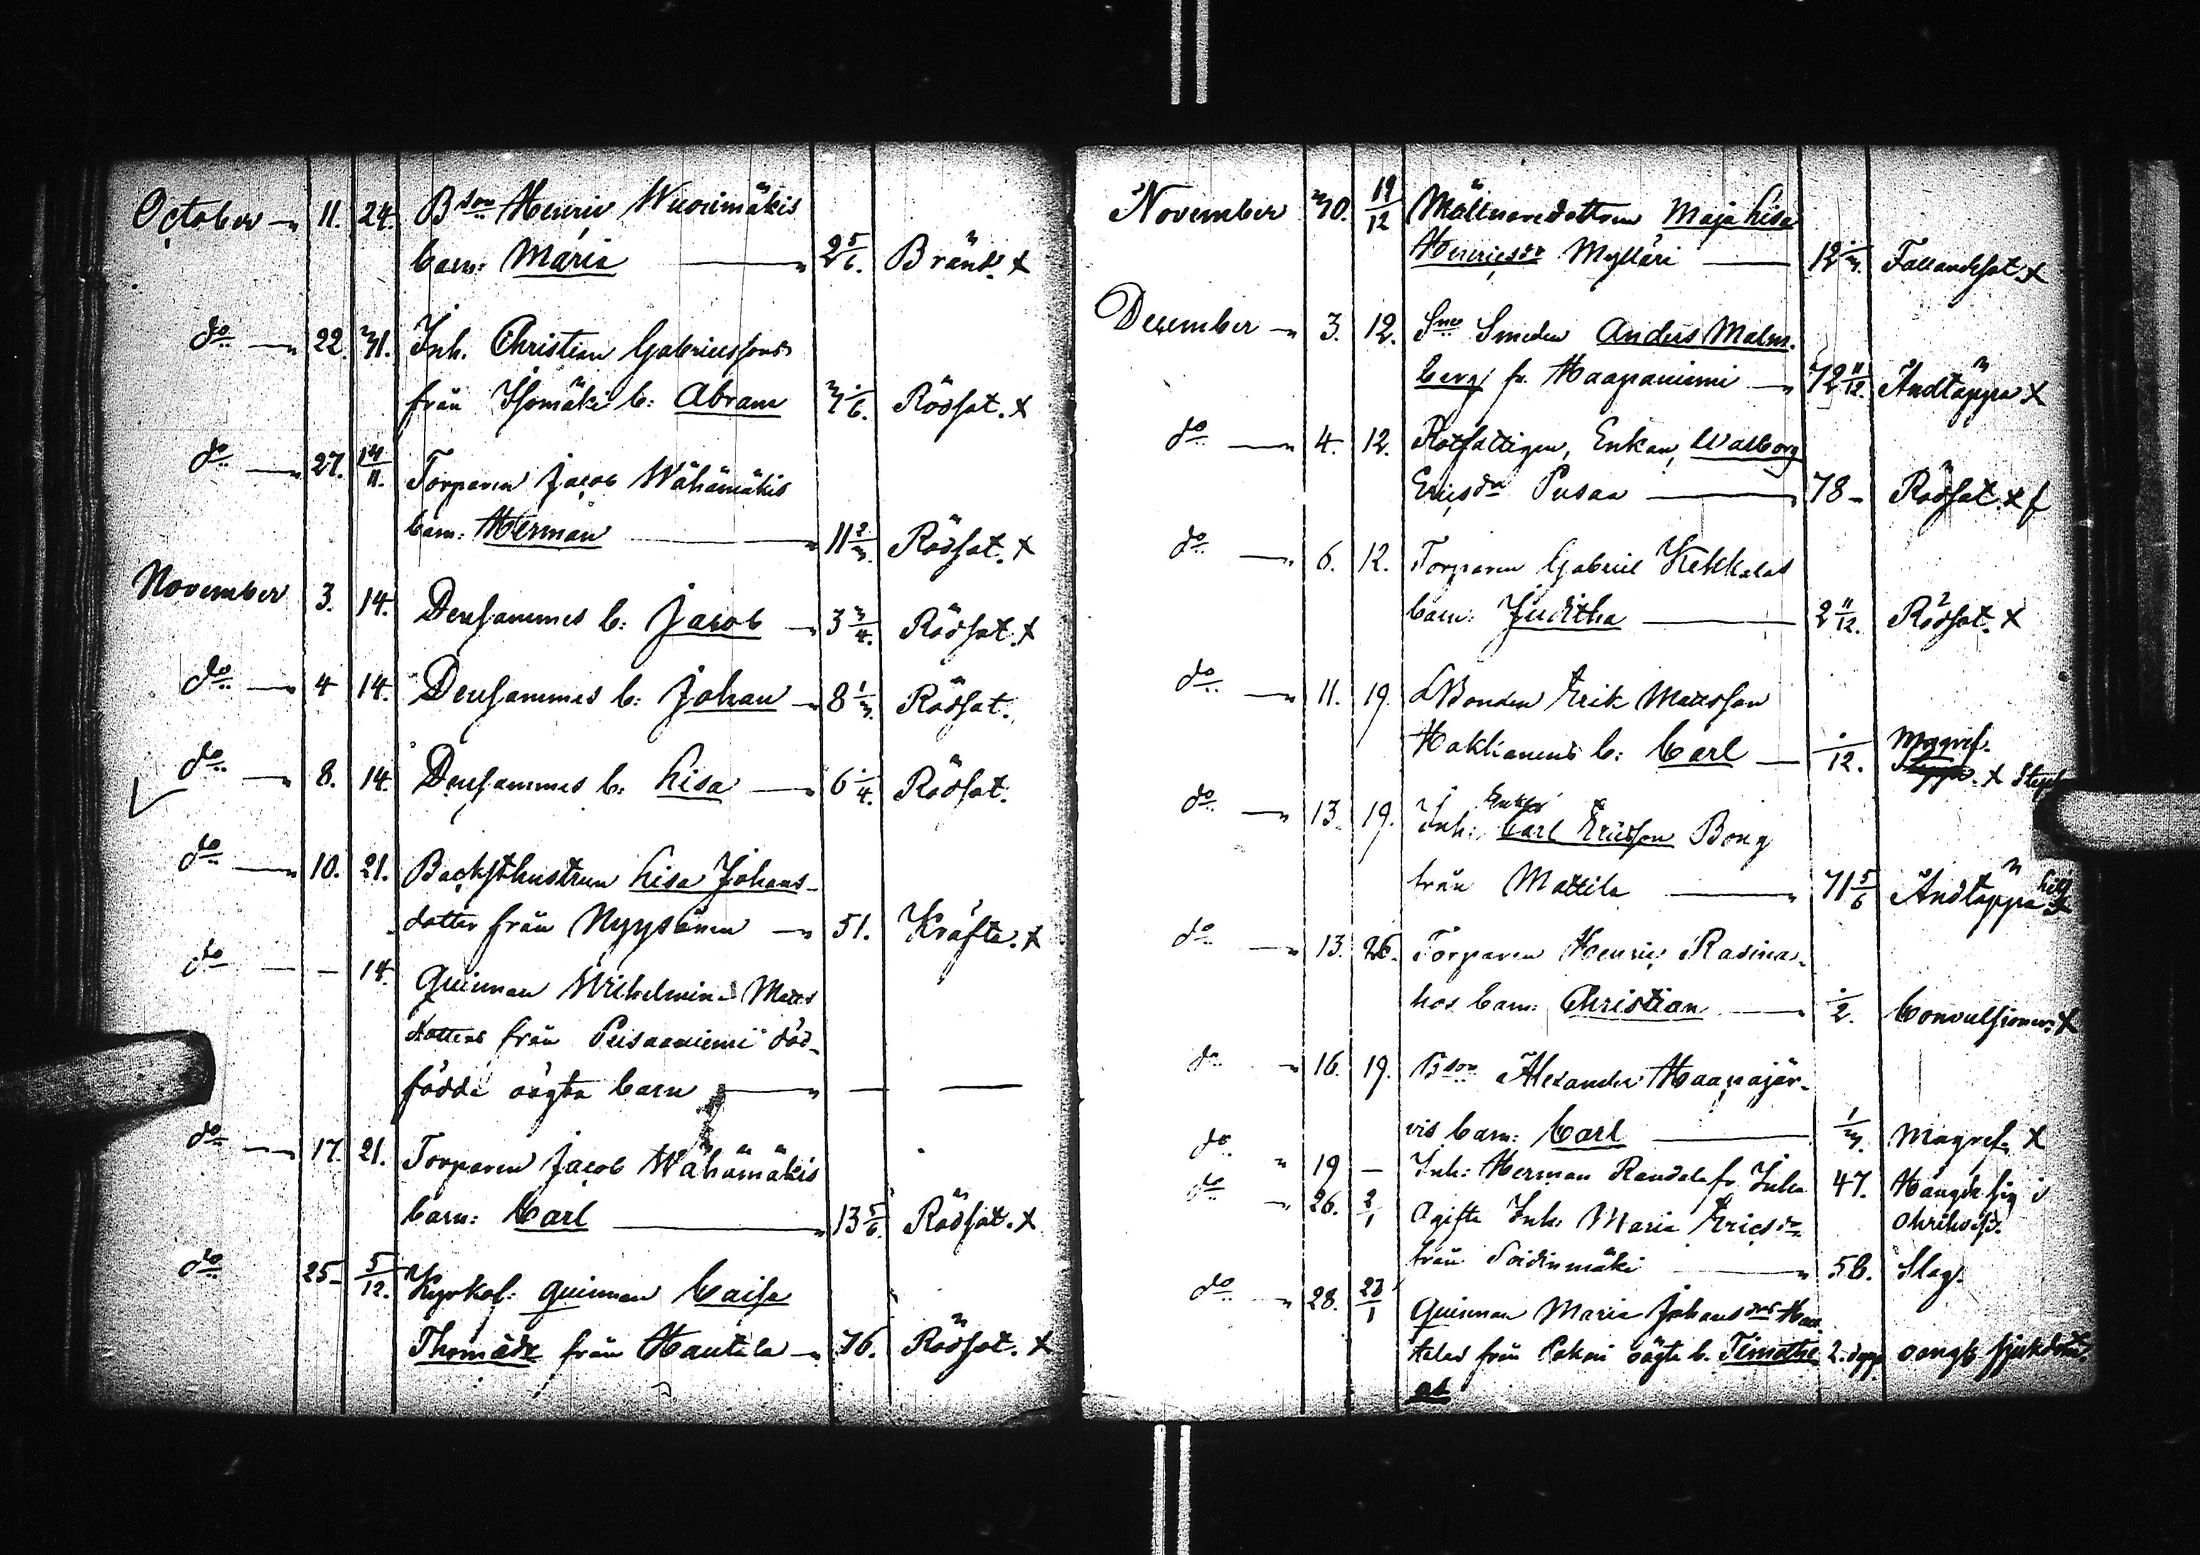 October 11. 24. Bson Henric Wuorimäkis
barn: Maria 2 5/6. Bränd. x
do 22. 31. Inh. Christian Gabrielssons
från Isomäki b: Abram 3 1/6. Rödsot. x
do 27. 14/11. Torparen Jacob Wähämäkis
barn: Herman 11 2/3. Rödsot. x
November 3. 14. Densammes b: Jacob 3 3/4. Rödsot. x
do 4 14. Densammes b: Johan 8 1/3. Rödsot.
do 8. 14. Densammes b: Lisa 6 1/4. Rödsot.
do 10. 21. Backsthustrun Lisa Johans-
dotter från Nyysönen 51. Kräfta. x
do — 14. Quinnan Wilhelmina Matts
dotters från Pusaaniemi död-
födda oägta barn — —
do 17. 21. Torparen Jacob Wähämäkis
barn: Carl 13 5/6. Rödsot. x
do 25 5/12. Kyrkof: quinnan Caisa
Thomädr från Hautala 76. Rödsot. x
November 30. 19/12 Mältnaredottren Maja Lisa
Henricsdr Mylläri 12 1/3. Fallandesot. x
December 3. 12. Sne Smeden Anders Malm-
berg fr. Haapaniemi 72 11/12. Andtäppa x
do 4. 12. Rotfattigen, Enkan, Walborg
Ericsdr Pusaa 78 Rödsot. x f
do 6. 12. Torparen Gabriel Kekkalas
barn: Juditha 2 11/12. Rödsot. x
do 11. 19. Bonden Erik Mattsson
Haklianens b: Carl 1/12. Magref. x
do 13. 19. Inh: Enkl. Carl Ericsson Bong
från Mattila 71 5/6 Andtäppa x
do 13. 26. Torparen Henric Radina-
hos barn: Christian 1/2. Convulsioner. x
do 16. 19. Bson Alexander Haapajär-
vis barn: Carl 1/3. Magref. x
do 19 — Inh: Herman Randela fr. Juha 47. Hängde sig i
do 26. 2/1 Ogifta Inh. Maria Ericsdr
från Soidinmäki 58. Slag.
do 28. 23/1 Quinnan Maria Johansdrs Haa-
talas från Pakari oägta b. Timothe 2. dygn oangif. sjukdom.
us